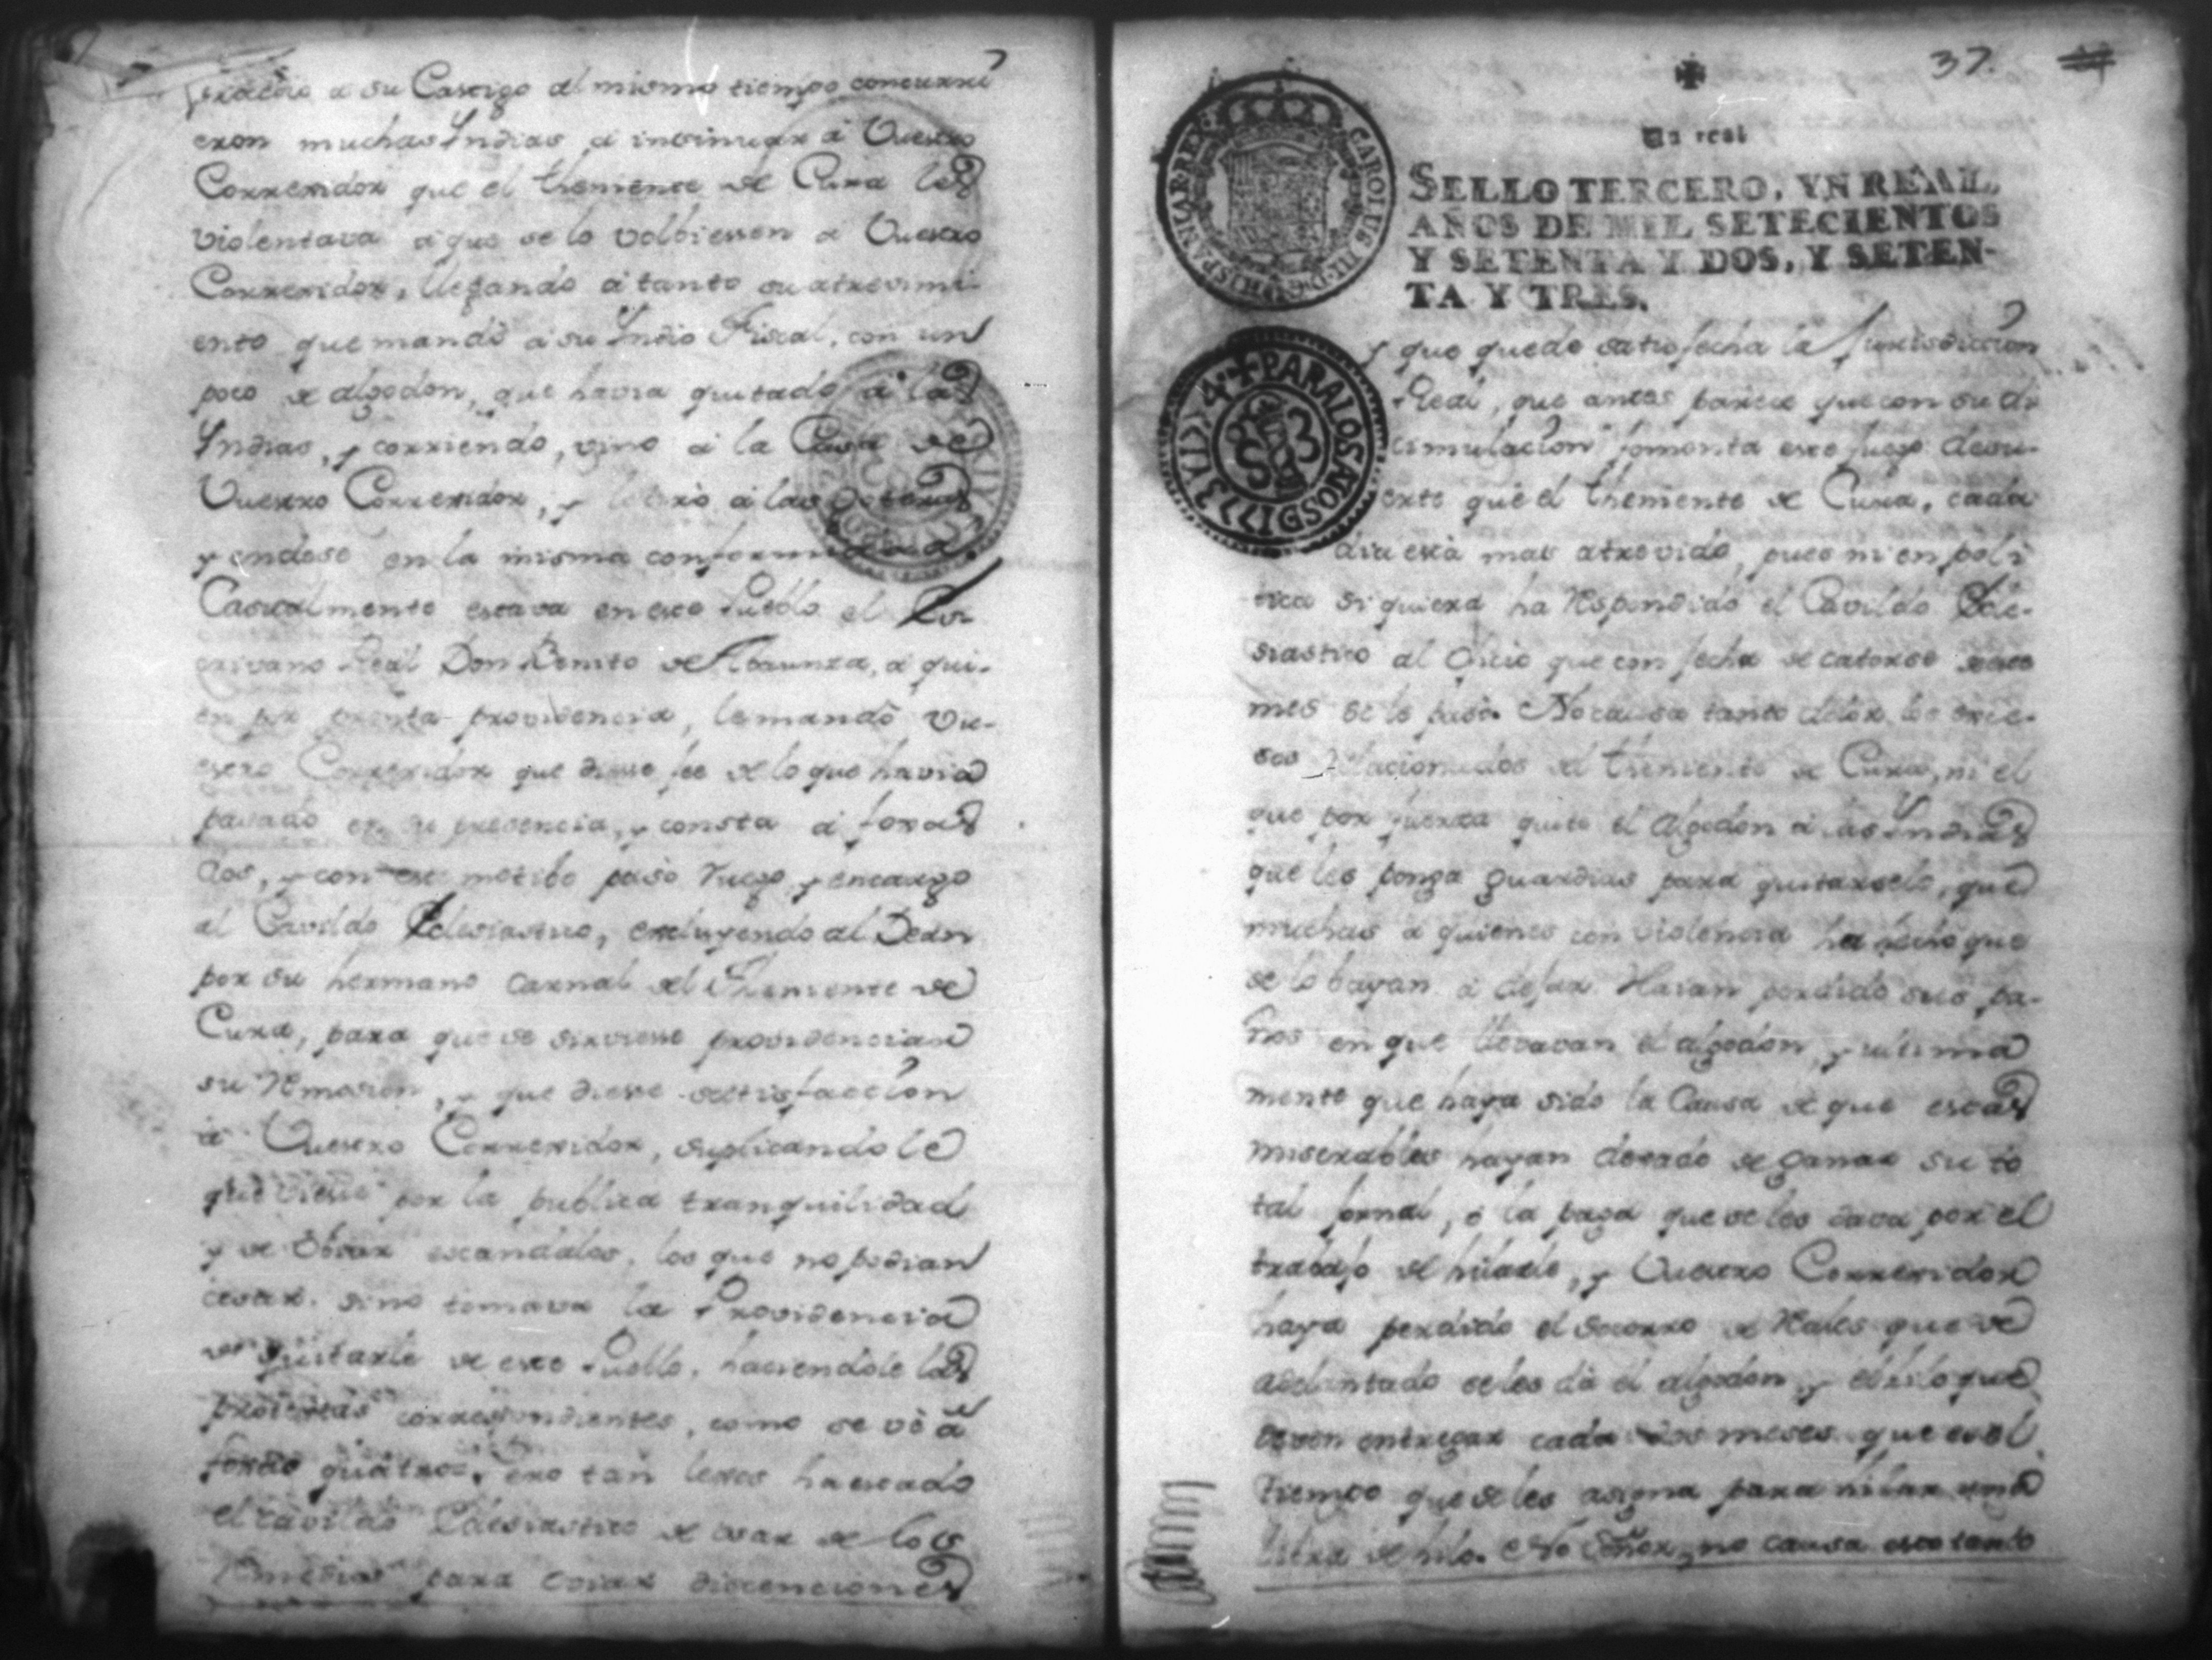 a su Castigo al mismo tiempo concurri
eron muchas Indias, a insinuar â Vuestro
Corregidor que el theniente de Cura las
violentava âque se lo volbiessen â Vuestro
Corregidor, llegando â tanto su atrevimi-
ento que mandô â su Indio Fiscal, con un
poco de algodon, que havia quitado â las
Indias, y corriendo, vino â la Casa de
Vuestro Corregidor, y â las
yendose en la misma conformidad.
Casualmente estava en este Pueblo el Es-
crivano Real Don Benito de, â qui-
en por pronta providencia, le mandô Vu-
estro Corregidor que diesse fee de lo que havia
pasado en su presencia, y consta â foxas
dos, y con este motibo pasô ruego y encargo
al Cavildo Eclesiastico, excluyendo al Dean
por su hermano carnal del Theniente de
Cura, para que se sirviesse providenciar
su remosion, y que diesse satisfaccion
â Vuestro Corregidor, suplicandole
que por la publica tranquilidad
y de obiar escandalos, los que no podian
cesar, sino tomava la Providencia
de quitarle de este Pueblo, haciendole las
protestas correspondientes, como se vê â
foxas quatro. Pero tan lexos ha estado
el Cavildo Eclesiastico de usar de los
remedios para obiar discenciones
37.
Un real
SELLO TERCERO, VN REAL,
AÑOS DE MIL SETECIENTOS
Y SETENTA Y DOS, Y SETEN-
TA Y TRES.
HISPANIAR REX CAROLUS III D G
PARA LOS AÑOS D 1773 Y 1774
y que quede satisfecha la Jurisdiccion
Real, que antes parece que con su di
cimulacion fomenta este fuego de su-
erte que el theniente de Cura, cada
dia està mas atrevido, pues ni en poli
tica siquiera ha respondido el Cavildo Ecle-
siastico al Oficio que con fecha de catorse de este
mes se le pasô. No causa tanto dolor los exce-
sos relacionados del theniente de Cura, ni el
que por fuerza quite el Algodon â las Indias
que les ponga guardias para quitarselo, que
muchas â quienes con violencia ha hecho que
se lo bayan â dejar. Haian perdido sus pa-
ños en que llevavan el algodon, y ultima
mente que haya sido la Causa de que estas
miserables hayan dexado de ganar su to
tal jornal, ô la paga que se les dava por el
trabajo de hilarlo, y Vuestro Corregidor
haya perdido el socorro de reales que de
adelantado se les dâ el algodon, y el hilo que
deven entregar cada dos meses que es el
tiempo que se les asigna para hilar una
libra de hilo. No Señor, no causa esto tanto